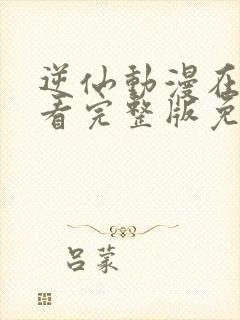 逆仙動漫在
看完整版免
吕蒙